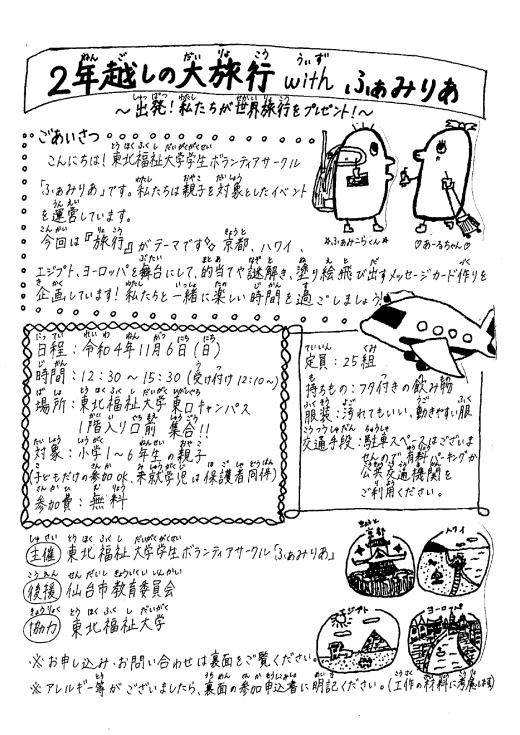 2年越しの大旅行 with ふぁみりあ
～出発！私たちが世界旅行をプレゼント！～
ごあいさつ
こんにちは！東北福祉大学学生ボランティアサークル
「ふぁみりあ」です。私たちは親子を対象としたイベント
を運営しています。
今回は『旅行』がテーマです 京都、ハワイ、
エジプト、ヨーロッパを舞台にして、的当てや謎解き、塗り絵、飛び出すメッセージカード作りを
企画しています！私たちと一緒に楽しい時間を過ごしましょう！
☆ふぁみこらくん☆
♡あーるちゃん♡
日程：令和4年11月6日（日）
時間：12：30～15：30（受け付け12：10～）
場所：東北福祉大学東口キャンパス
1階入り口前 集合!!
対象：小学1～6年生の親子
（子どもだけの参加OK、未就学児は保護者同伴）
参加費：無料
定員：25組
持ちもの：フタ付きの飲み物
服装：汚れてもいい、動きやすい服
交通手段：駐車スペースはございま
せんので、有料パーキングか
公共交通機関を
ご利用ください。
主催 東北福祉大学学生ボランティアサークル「ふぁみりあ」
後援 仙台市教育委員会
協力 東北福祉大学
京都
ハワイ
エジプト
ヨーロッパ
※お申し込み・お問い合わせは裏面をご覧ください。
※アレルギー等がございましたら、裏面の参加申込書に明記ください。（工作の材料に考慮します）